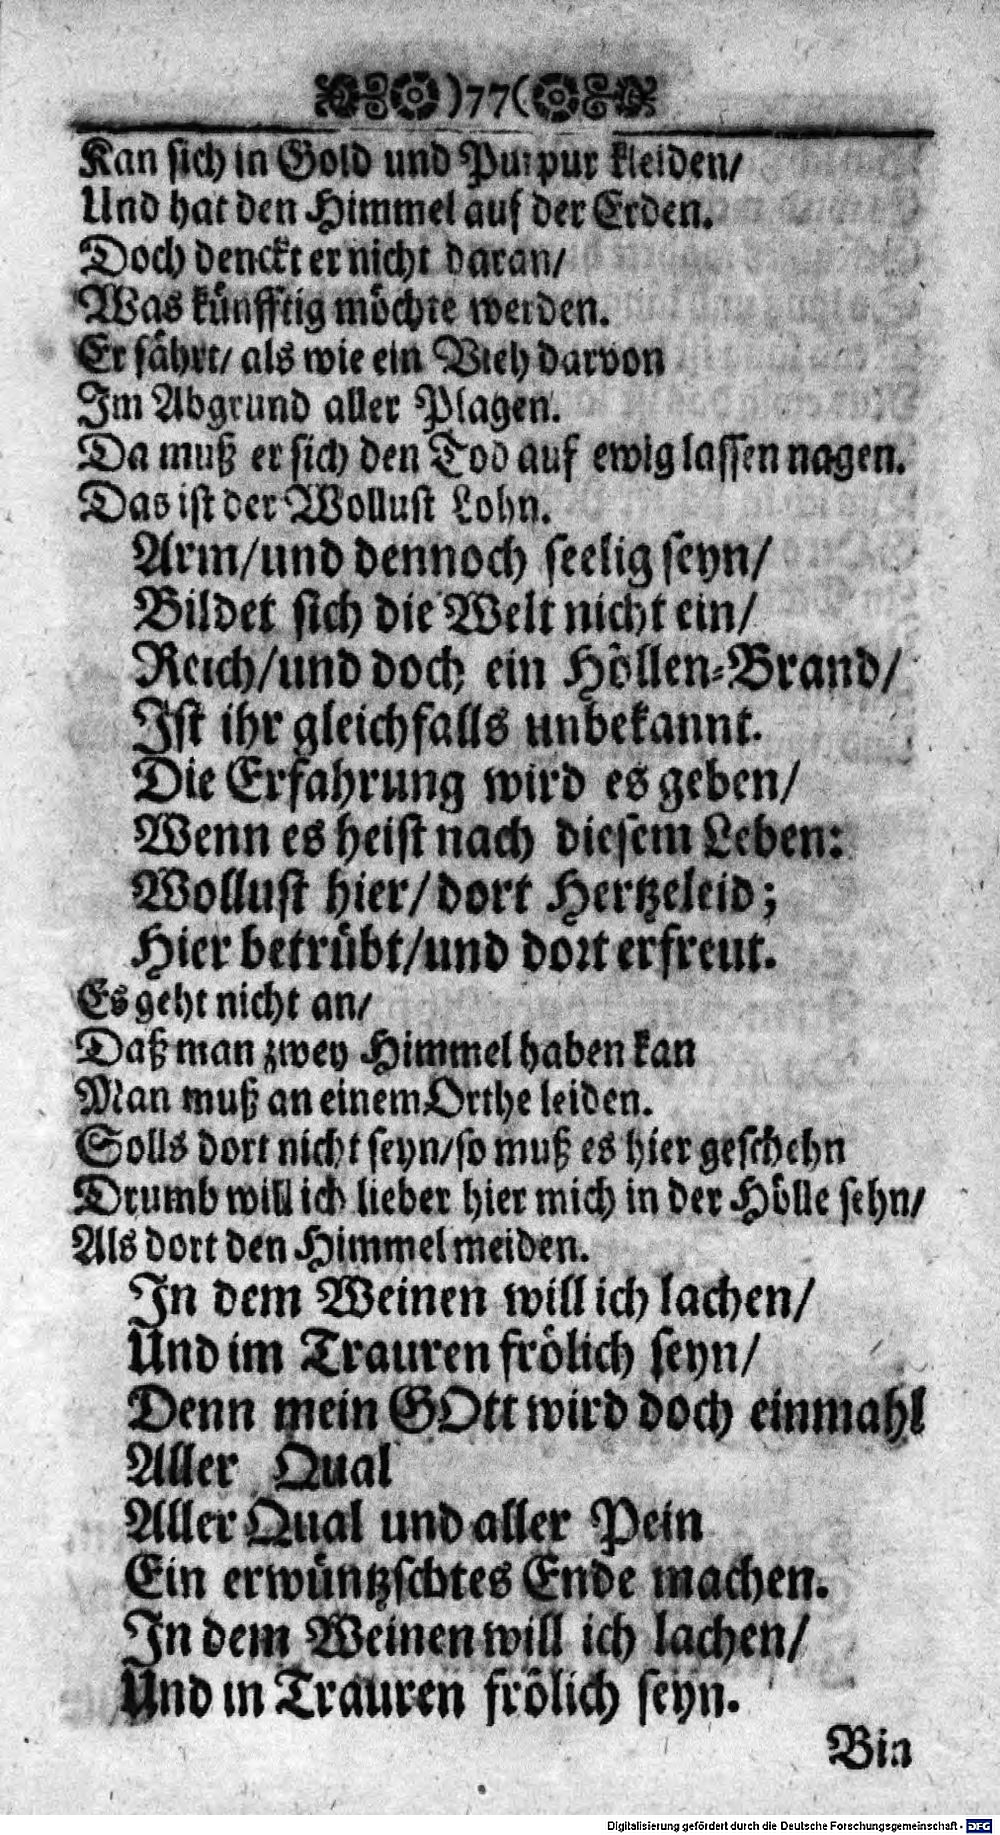 )77(
Kan sich in Gold und Purpur kleiden/
Und hat den Himmel auf der Erden.
Doch denckt er nicht daran/
Was künfftig möchte werden.
Er fährt/ als wie ein Vieh darvon
Im Abgrund aller Plagen.
Da muß er sich den Tod auf ewig lassen nagen.
Das ist der Wollust Lohn.
Arm/und dennoch seelig seyn/
Bildet sich die Welt nicht ein/
Reich/und doch ein Höllen-Brand/
Ist ihr gleichfalls unbekannt.
Die Erfahrung wird es geben/
Wenn es heist nach diesem Leben:
Wollust hier/dort Hertzeleid;
Hier betrübt/und dort erfreut.
Es geht nicht an/
Daß man zwey Himmel haben kan
Man muß an einem Orthe leiden.
Solls dort nicht seyn/so muß es hier geschehn
Drumb will ich lieber hier mich in der Hölle sehn/
Als dort den Himmel meiden.
In dem Weinen will ich lachen/
Und im Trauren frölich seyn/
Denn mein GOtt wird doch einmahl
Aller Qual
Aller Qual und aller Pein
Ein erwüntzschtes Ende machen.
In dem Weinen will ich lachen/
Und in Trauren frölich seyn.
Bin
Digitalisierung gefördert durch die Deutsche Forschungsgemeinschaft - DFG